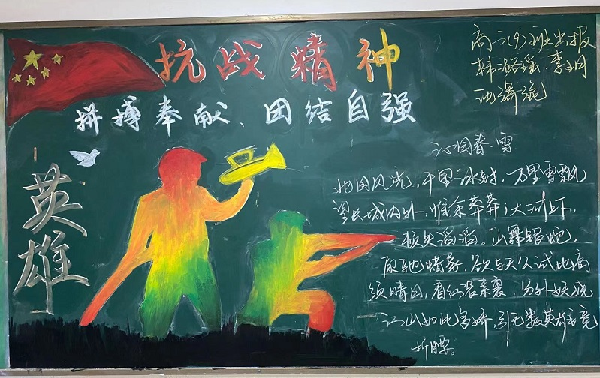 抗战精神
拼搏奉献、团结自强
英雄
高一(9)班出报
沁园春 雪
北国风光，千里冰封，万里雪飘
望长城内外，惟余莽莽；大河上下，
顿失滔滔。山舞银蛇，
原驰蜡象，欲与天公试比高
须晴日，看红装素裹，分外妖娆
江山如此多娇，引无数英雄竞
折腰。